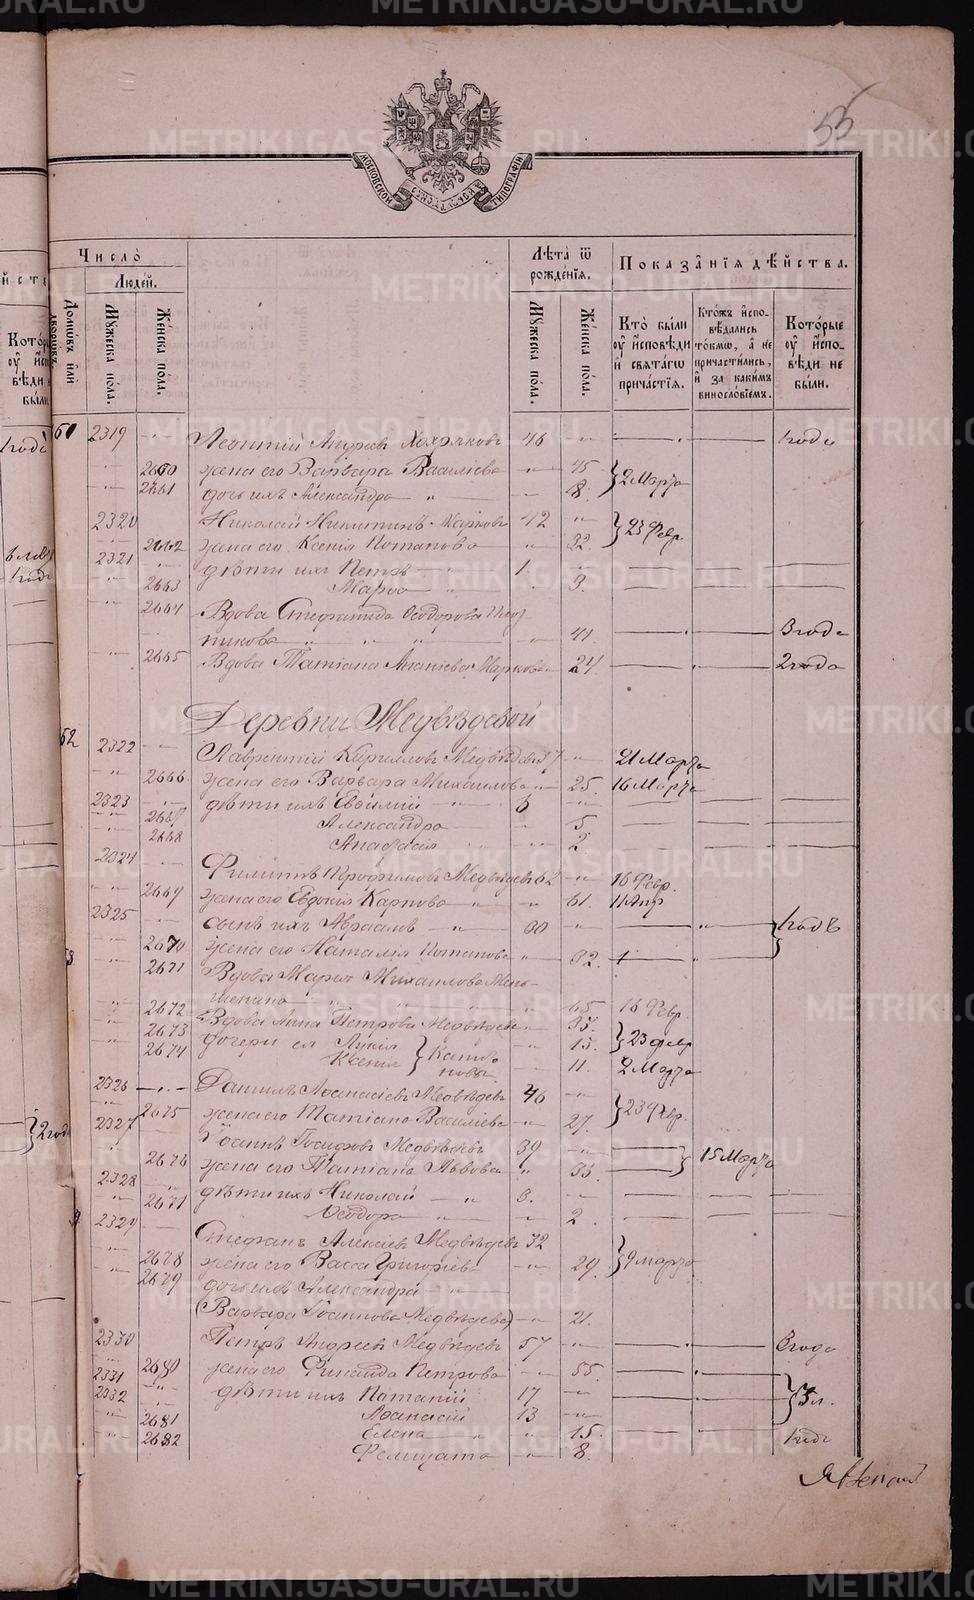 METRIKI.GASO-URAL.RU
55
МОСКОВСКОЙ СѴНОДАЛЬНОЙ ТИПОГРАФІИ
Число̀
Люде́й.
Домѡ́въ и҆лѝ дворѡ́въ.
Мꙋ́жеска по́ла.
Же́нска по́ла.
Лѣ́та ѿ рожде́нїѧ.
Мꙋ́жеска по́ла.
Же́нска по́ла.
Показа̑нїѧ дѣ́йства.
Кто̀ бы́ли оу҆ и҆сповѣ́ди и҆ свѧта́гѡ прича́стїѧ.
Кто́жъ и҆спо-вѣ́дались то́кмѡ, а҆ не причасти́лись, и҆ за каки́мъ винослові́емъ.
Кото́рые оу҆ и҆спо-вѣ́ди не бы́ли.
2319 Леонтій Андреевъ Хохряковъ 46 1 годъ
2660 жена его Варвара Василіева 45
2661 дочь ихъ Александра 8. 2 Марта
2320 Николай Никитинъ Марковъ 42
2662 жена его Ксенія Потапова 32. 23 Фев.
2321 дѣти ихъ Петръ 1.
2663 Марѳа 3.
2664 Вдова Стефанида Ѳеодорова
никова 41. 3 года
2665 Вдова Татіана Ананіева Маркова 24 2 года
Деревни Медвѣдевой
62 2322 Лаврентій Кирилловъ Медвѣдевъ 21 Марта
2666 жена его Варвара Михаилова 25. 16 Марта
2323 дѣти ихъ Евѳимій 6
2667 Александра 5
2668 Анаѳасія 2
2324 Филиппъ Трофимовъ Медвѣдевъ 62 16 Февр.
2669 жена его Евдокія Карпова 61. 11 Апр
2325 сынъ ихъ Авраамъ 1 годъ
2670 жена его Наталія Потапова 32.
2671 Вдова Марья Михаилова Мень-
шенина 65 16 Февр.
2672 Вдова Анна Петрова Медвѣдева 35.
2673 дочери ея Лукія 15. 23 февр
2674 Ксенія 11. 2 Марта
2326 Даніилъ Аѳанасіевъ Медвѣдевъ 46
2675 жена его Татіана Василіева 27. 23 Фвр.
2327 Іоаннъ Іосифовъ Медвѣдевъ 39
2676 жена его Татіана Львова 36. 15 Марта
2328 дѣти ихъ Николай 3.
2677 Ѳеодора 2.
2329 Стефанъ Алексіевъ Медвѣдевъ 32
2678 жена его Васса Григоріева 29. 9 марта
2679 дочь ихъ Александра
(Варвара Іоаннова Медвѣдева) 21.
2330 Петръ Андреевъ Медвѣдевъ 57 3 года
2680 жена его Фикаида Петрова 55.
2331 дѣти ихъ Потапій 17
2332 Аѳанасій 13 3 л.
2681 Елена 15.
2682 Фелицата 8. 1 годъ